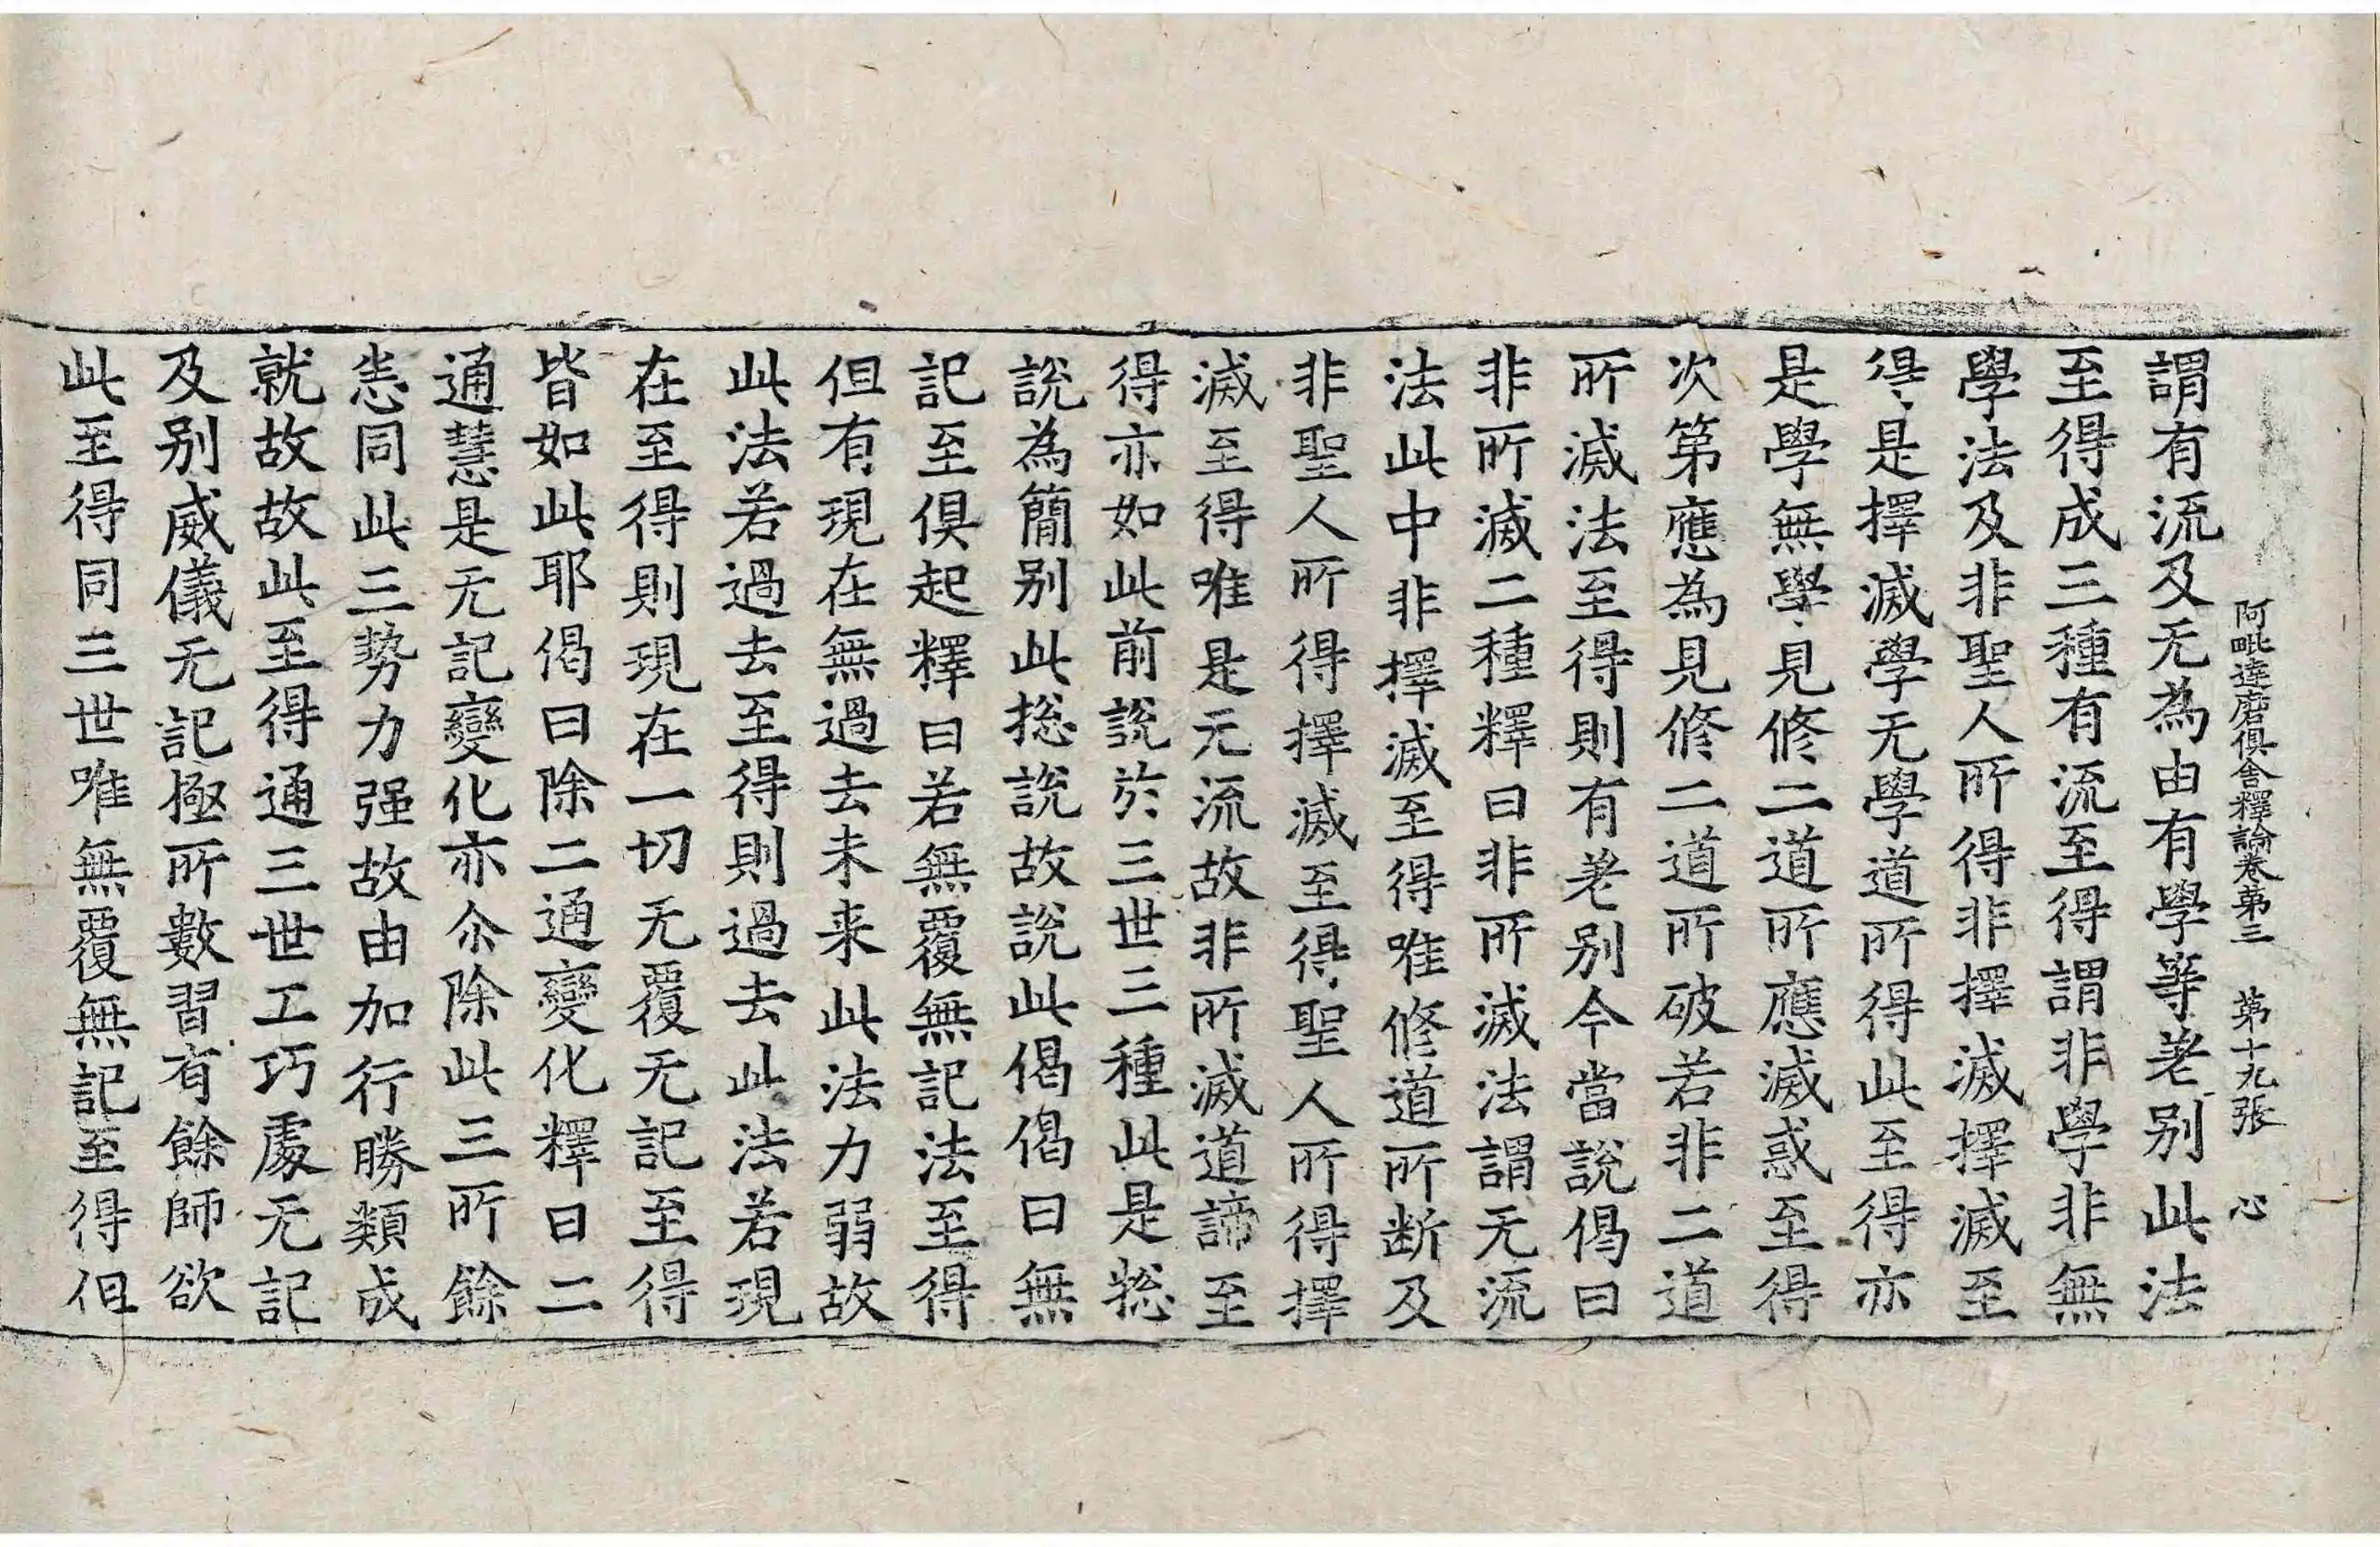 阿毗達磨俱舍釋論卷第三　第十九張　心
謂有流及无為由有學等差別此法
至得成三種有流至得謂非學非無
學法及非聖人所得非擇滅擇滅至
得是擇滅學无學道所得此至得亦
是學無學見修二道所應滅惑至得
次第應為見修二道所破若非二道
所滅法至得則有差別今當說偈曰
非所滅二種釋曰非所滅法謂无流
法此中非擇滅至得唯修道所斷及
非聖人所得擇滅至得聖人所得擇
滅至得唯是无流故非所滅道諦至
得亦如此前說於三世三種此是揔
說為簡別此揔說故說此偈偈曰無
記至俱起釋曰若無覆無記法至得
但有現在無過去未来此法力弱故
此法若過去至得則過去此法若現
在至得則現在一切无覆无記至得
皆如此耶偈曰除二通變化釋曰二
通慧是无記變化亦尒除此三所餘
悉同此三勢力强故由加行勝類成
就故故此至得通三世工巧處无記
及别威儀无記極所數習有餘師欲
此至得同三世唯無覆無記至得但